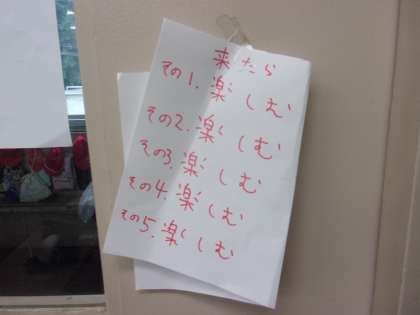 来たら
その1.楽しむ
その2.楽しむ
その3.楽しむ
その4.楽しむ
その5.楽しむ